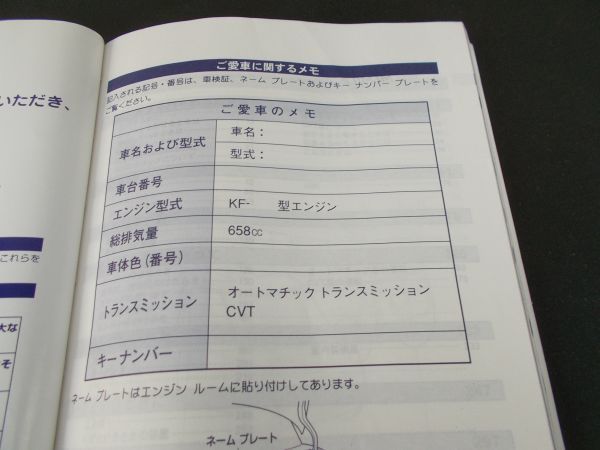 いただき、
これらを
大な
そ
ご愛車に関するメモ
記入される記号・番号は、車検証、ネーム プレートおよびキー ナンバー プレートを
ご覧ください。
ご愛車のメモ
車名および型式
車名：
型式：
車台番号
エンジン型式
KF- 型エンジン
総排気量
658cc
車体色(番号)
トランスミッション
オートマチック トランスミッション
CVT
キーナンバー
ネーム プレートはエンジン ルームに貼り付けしてあります。
ネーム プレート